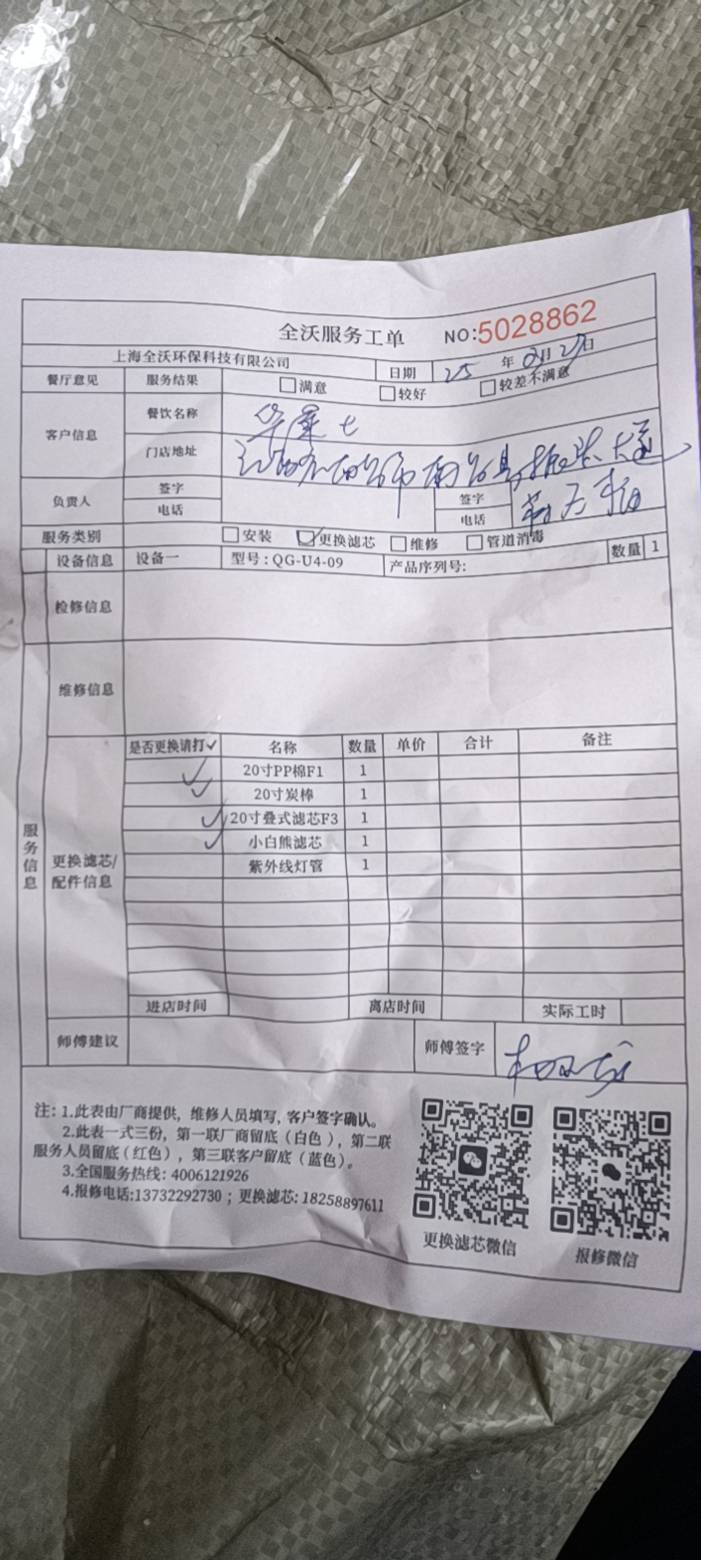 全沃服务工单 NO:5028862
上海全沃环保科技有限公司 日期 25 年 2月27日
餐厅意见 服务结果 满意 较好 较差不满意
客户信息 餐饮名称 华莱士
门店地址
负责人 签字 签字
电话 电话
服务类别 安装 更换滤芯 维修 管道消毒
设备信息 设备一 型号:QG-U4-09 产品序列号: 数量 1
检修信息
维修信息
服务信息
更换滤芯/配件信息
是否更换请打✓ 名称 数量 单价 合计 备注
✓ 20寸PP棉F1 1
✓ 20寸炭棒 1
✓ 20寸叠式滤芯F3 1
✓ 小白熊滤芯 1
紫外线灯管 1
进店时间 离店时间 实际工时
师傅建议 师傅签字
注: 1.此表由厂商提供，维修人员填写, 客户签字确认。
2.此表一式三份，第一联厂商留底（白色），第二联
服务人员留底（红色），第三联客户留底（蓝色）。
3.全国服务热线: 4006121926
4.报修电话:13732292730；更换滤芯: 18258897611
更换滤芯微信 报修微信